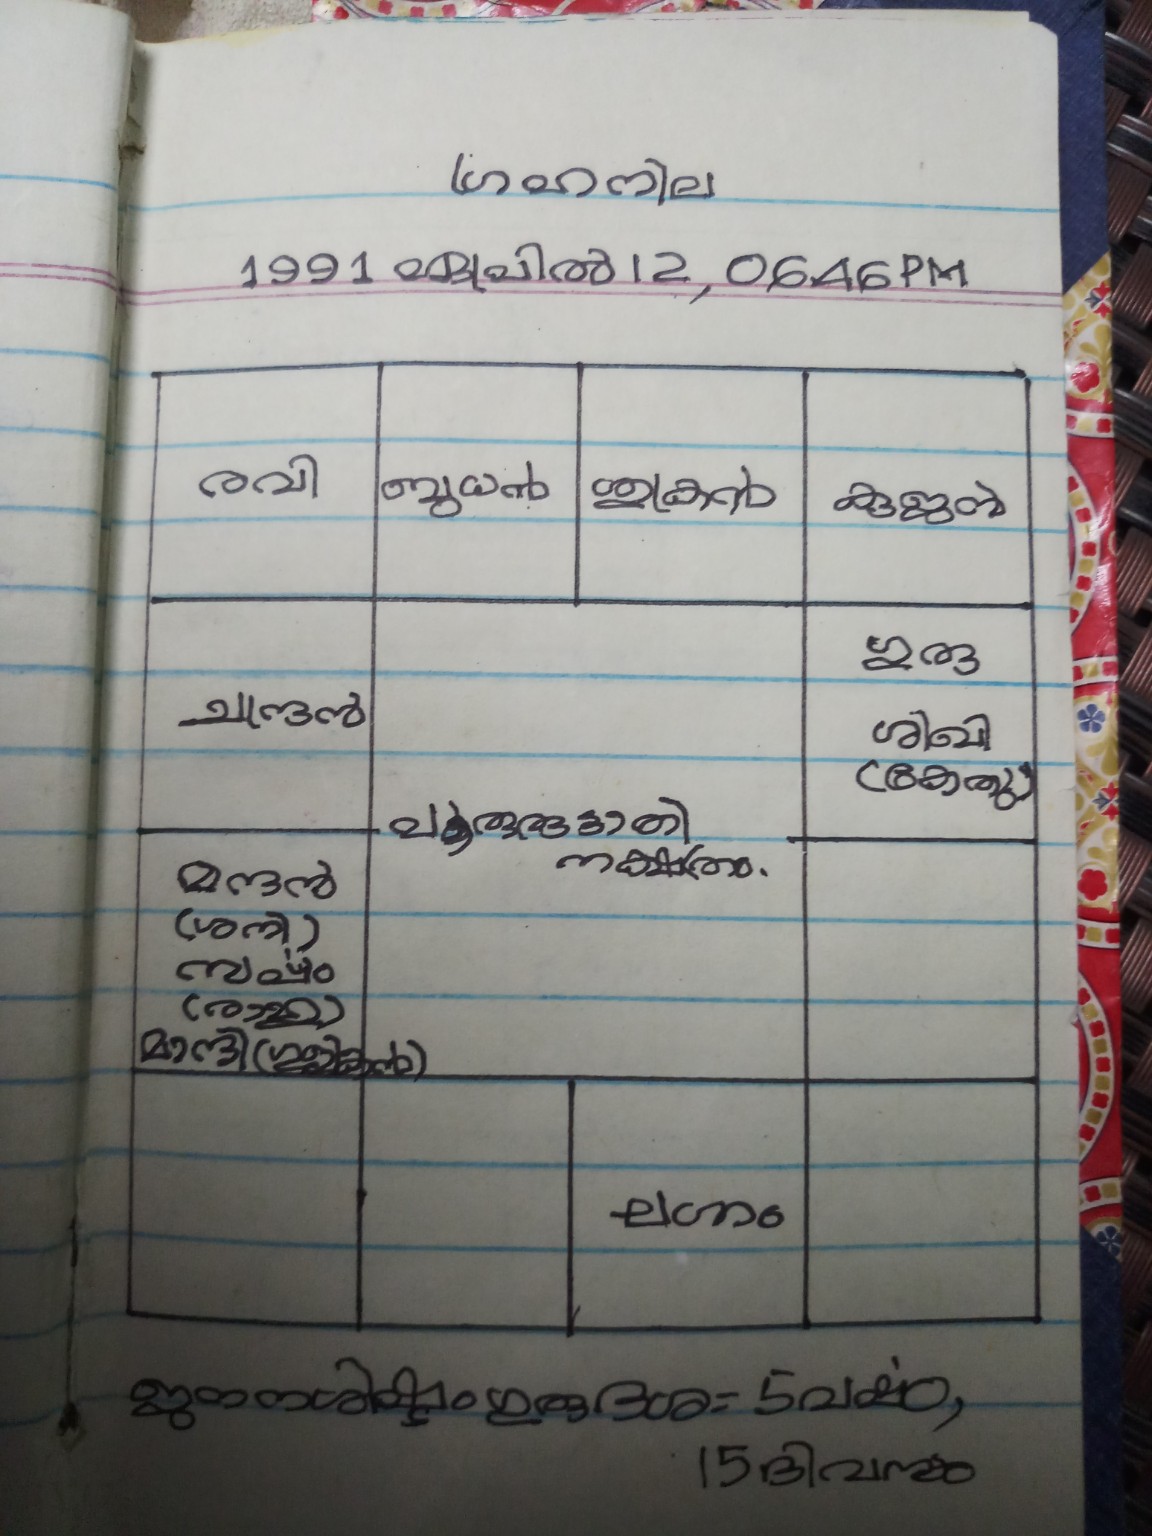 ഗ്രഹനില
1991 ഏപ്രിൽ 12, 0646PM
രവി
ബുധൻ
ശുക്രൻ
കുജൻ
ചന്ദ്രൻ
ഗുരു
ശിഖി
(കേതു)
പൂരുരുട്ടാതി
നക്ഷത്രം.
മന്ദൻ
(ശനി)
സർപ്പം
(രാഹു)
മാന്ദി (ഗുളികൻ)
ലഗ്നം
ജനനശിഷ്ടം ഗുരു ദശ = 5 വർഷം,
15 ദിവസം